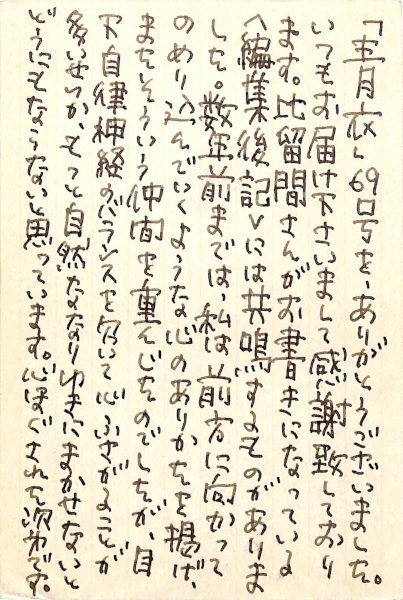 「青衣」69号を、ありがとうございました。
いつもお届け下さいまして感謝致しており
ます。比留間さんがお書きになっている
〈編集後記〉には共鳴するものがありま
した。数年前までは、私は前方に向かって
のめり込んでいくような心のありかたを掲げ、
またそういう仲間を重んじたのでしたが、目
下自律神経のバランスを欠いて心ふさがることが
多いせいか、もっと自然ななりゆきにまかせないと
どうにもならないと思っています。心ほぐされた次第です。